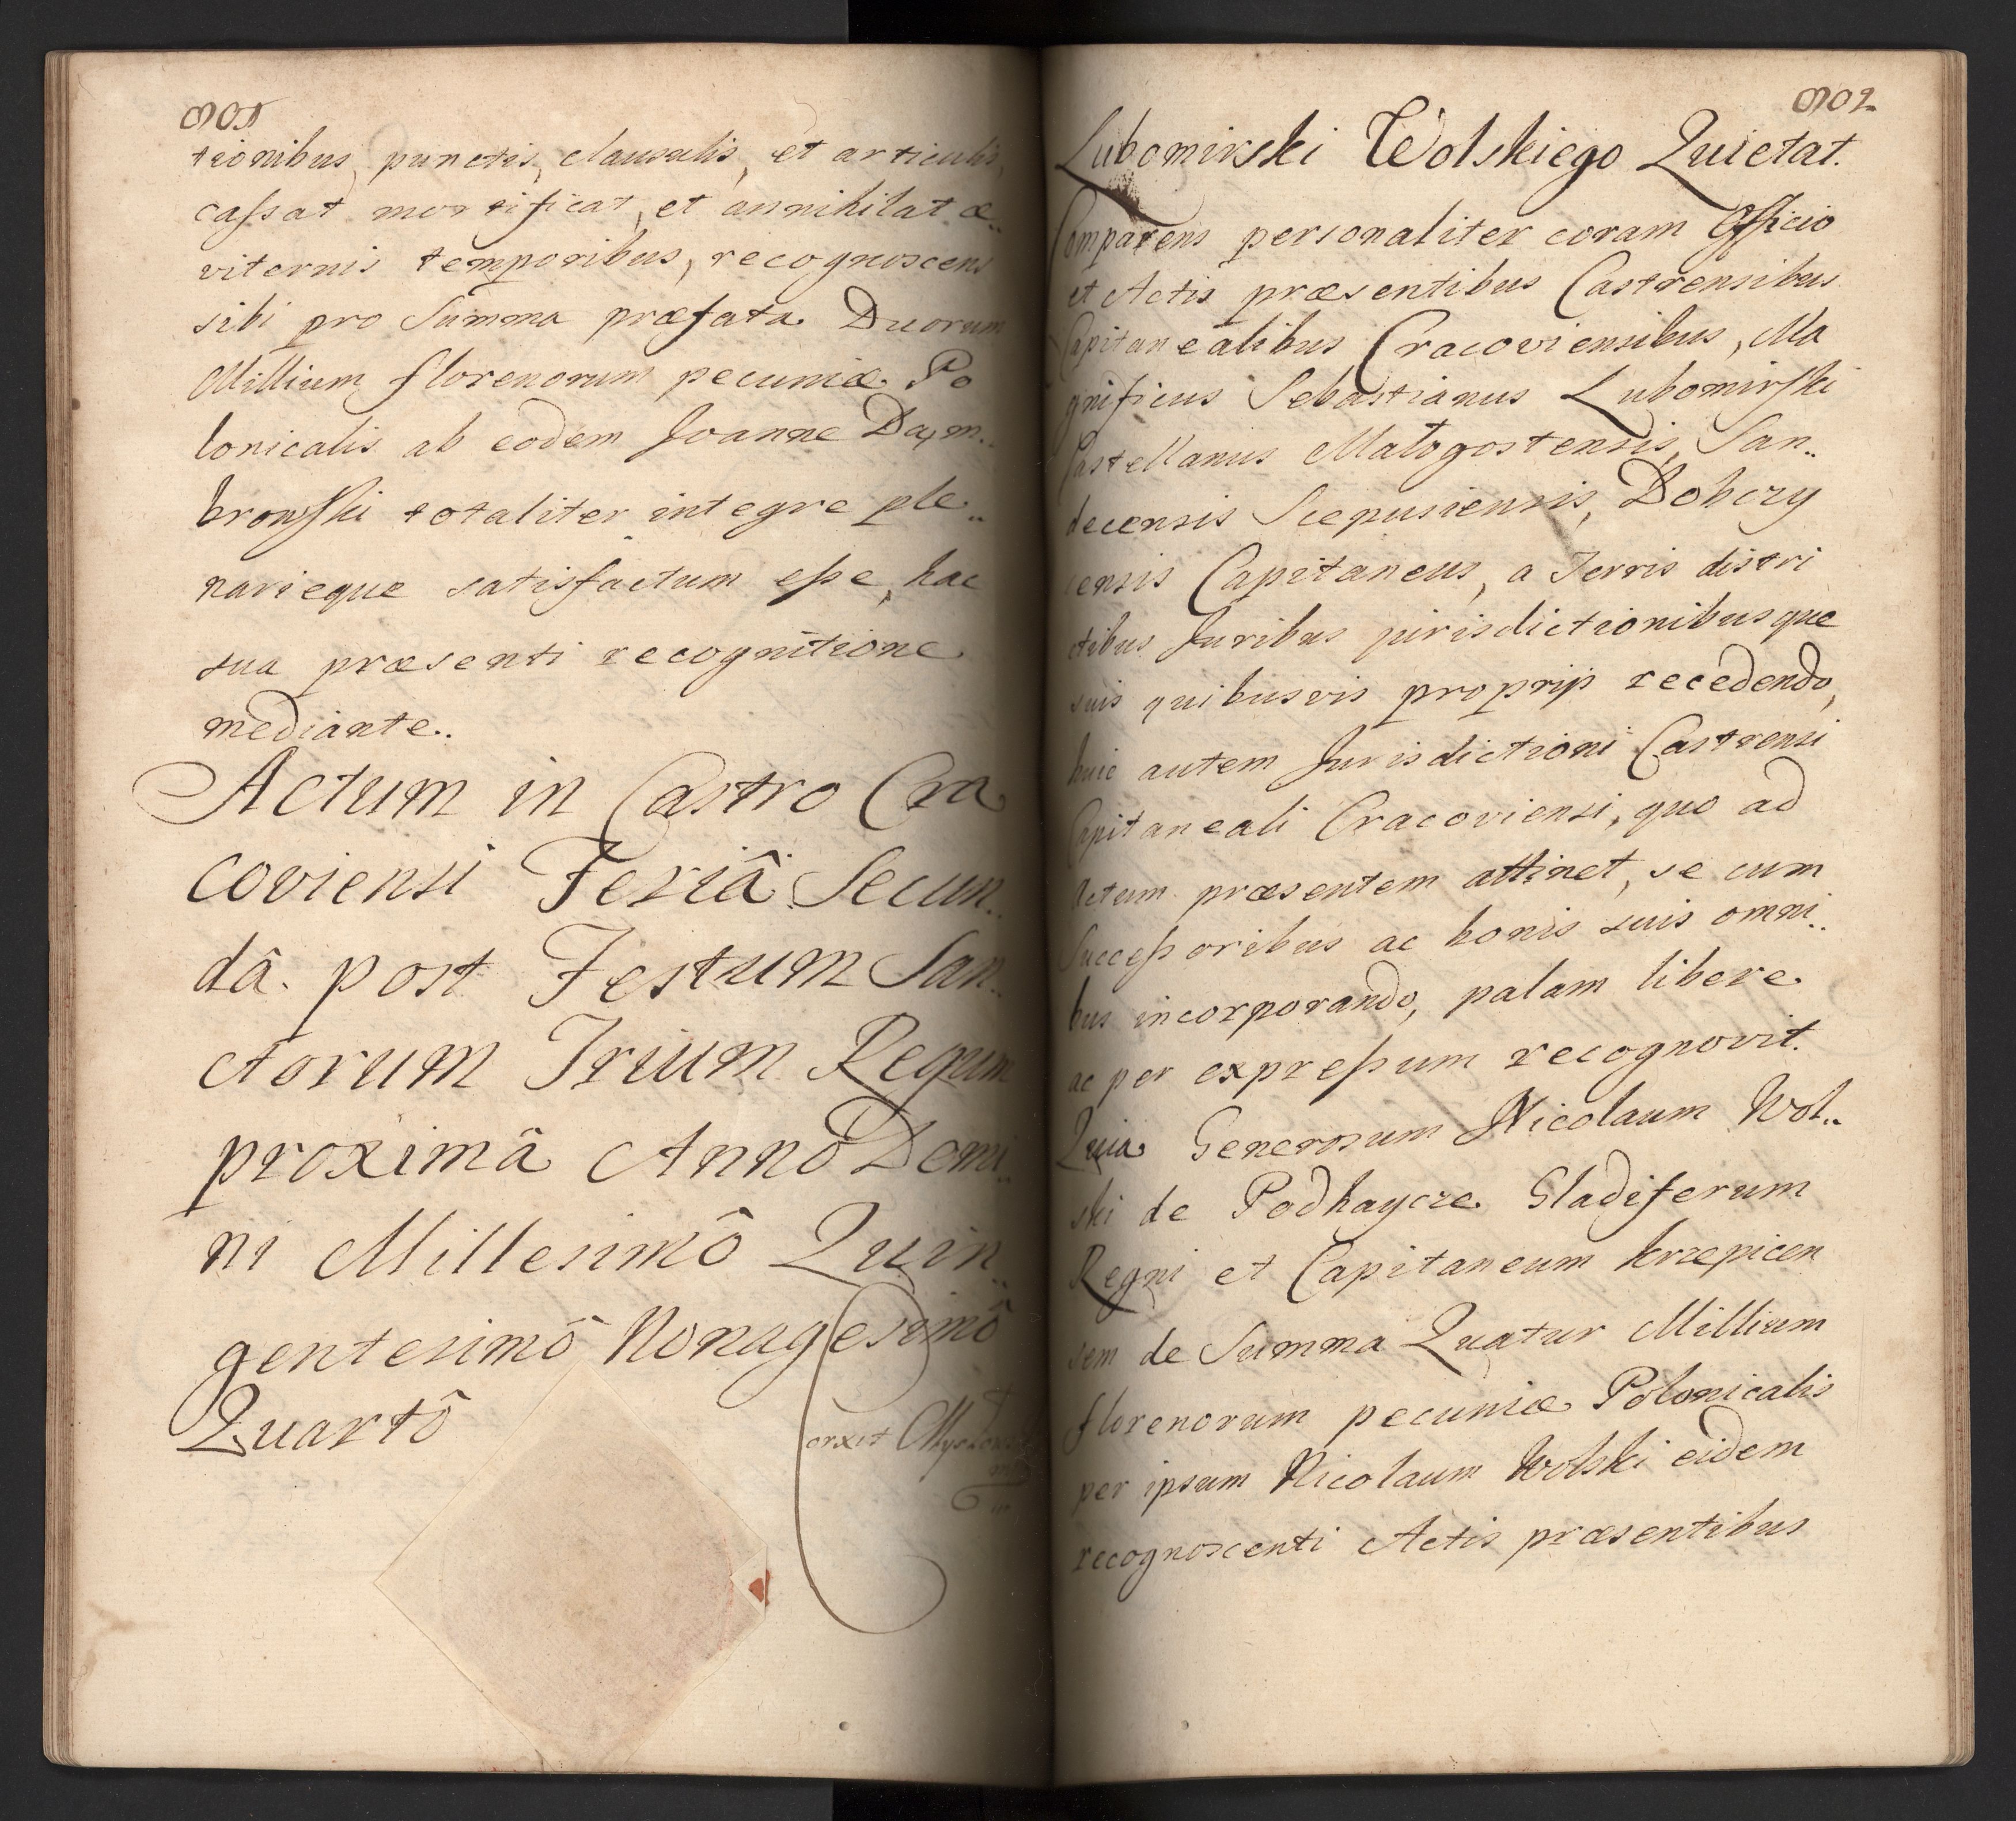 901
tionibus, punctis, clausulis, et articulis,
cassat mortificat, et annihilat æ..
viternis temporibus, recognoscens
sibi pro Summa præfata Duorum
Millium florenorum pecuniæ Po
lonicalis ab eodem Joanne Daym..
browski totaliter integre ple..
narieque satisfactum esse, hac
sua præsenti recognitione
mediante..
Actum in Castro Cra
coviensi Feriâ Secun..
dâ. post Festum San..
ctorum Trium Regum
proximâ Annô Domi..
ni Millesimô Quin..
gentesimô Nonagesimô
Quartô
902
Lubomirski Wolskiego Quietat.
Comparens personaliter coram Officio
et Actis præsentibus Castrensibus
Capitanealibus Cracoviensibus, Ma
gnificus Sebastianus Lubomirski
Castellanus Malogostensis, San..
decensis Scepusiensis, Dobczy
censis Capitaneus, a Terris distri
ctibus Juribus jurisdictionibusque
suis quibusvis proprijs recedendo,
huic autem Jurisdictioni Castrensi
Capitaneali Cracoviensi, quo ad
Actum præsentem attinet, se cum
Successoribus ac bonis suis omni..
bus incorporando, palam libere
ac per expressum recognovit.
Quia Generosum Nicolaum Wol..
ski de Podhaycze Gladiferum
Regni et Capitaneum krzepicen
sem de Summa Quatur Millium
florenorum pecuniæ Polonicalis
per ipsum Nicolaum Wolski eidem
recognoscenti Actis præsentibus